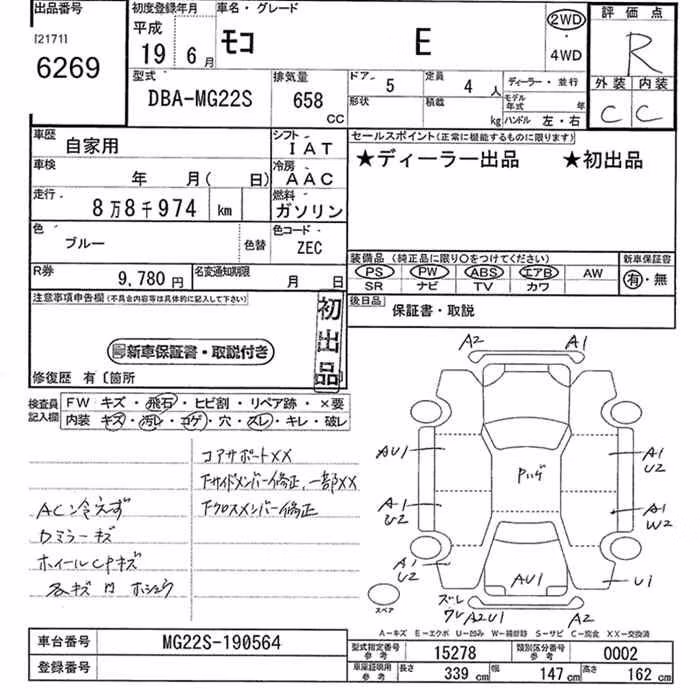 出品番号
[2171]
6269
初度登録年月
平成
19 6月
車名・グレード
モコ E
2WD
・
4WD
評価点
R
外装 内装
C C
型式
DBA-MG22S
排気量
658
CC
ドア
5
定員
4 人
形状
積載
kg
ディーラー・並行
モデル年式 年
ハンドル 左・右
車歴
自家用
シフト
IAT
車検
年 月( 日)
冷房
AAC
走行
8万8千974 km
燃料
ガソリン
色
ブルー
色替
色コード
ZEC
R券
9,780円
名変通知期限
月 日
セールスポイント(正常に機能するものに限ります)
★ディーラー出品 ★初出品
装備品 (純正品に限り○をつけてください)
新車保証書
PS PW ABS エアB AW
有・無
SR ナビ TV カワ
後日品
保証書・取説
注意事項申告欄(不具合内容等は具体的に記入して下さい)
新車保証書・取説付き
初出品
修復歴 有〔箇所
検査員記入欄
FW キズ・飛石・ヒビ割・リペア跡・×要
内装 キズ・汚レ・コゲ・穴・スレ・キレ・破レ
コアサポートXX
下サイドメンバー修正、一部XX
下クロスメンバー修正
AC冷えず
ドミラーキズ
ホイールCPキズ
A2 A1
AU1
A1
U2
A1
U2
A1
W2
A1
U2
AU1
U1
スペア
ズレ
ワレ
A2U1
A2
A-キズ E-エクボ U-凹み W-補修跡 S-サビ C-腐食 XX-交換済
車台番号
MG22S-190564
登録番号
型式指定番号 参考
15278
類別区分番号 参考
0002
車庫証明用 参考
長さ 339 cm
幅 147 cm
高さ 162 cm